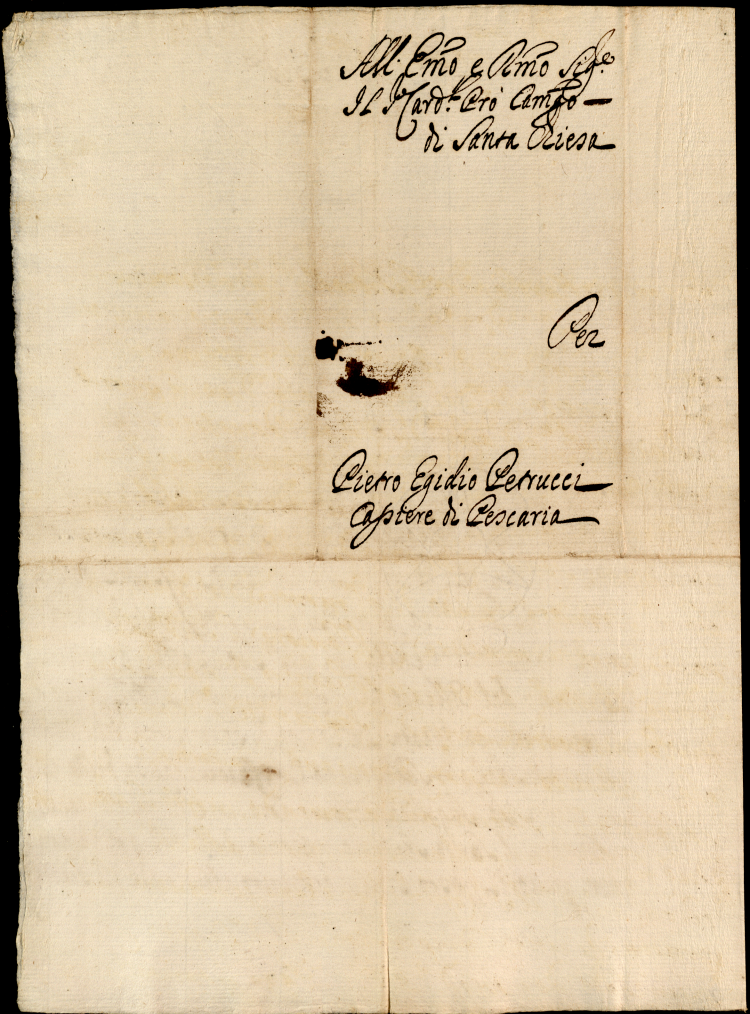 All'. Emo, e Rmo Sigre
Il S. Card.le Pro' Camgo
di Santa Chiesa
Per
Pietro Egidio Petrucci
Cassiere di Pescaria